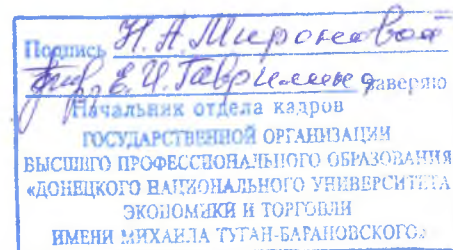 Подпись Н. А. Мироновой
Е. И. Гаврилина заверяю
Начальник отдела кадров
ГОСУДАРСТВЕННОЙ ОРГАНИЗАЦИИ
ВЫСШЕГО ПРОФЕССИОНАЛЬНОГО ОБРАЗОВАНИЯ
«ДОНЕЦКОГО НАЦИОНАЛЬНОГО УНИВЕРСИТЕТА
ЭКОНОМИКИ И ТОРГОВЛИ
ИМЕНИ МИХАИЛА ТУГАН-БАРАНОВСКОГО»